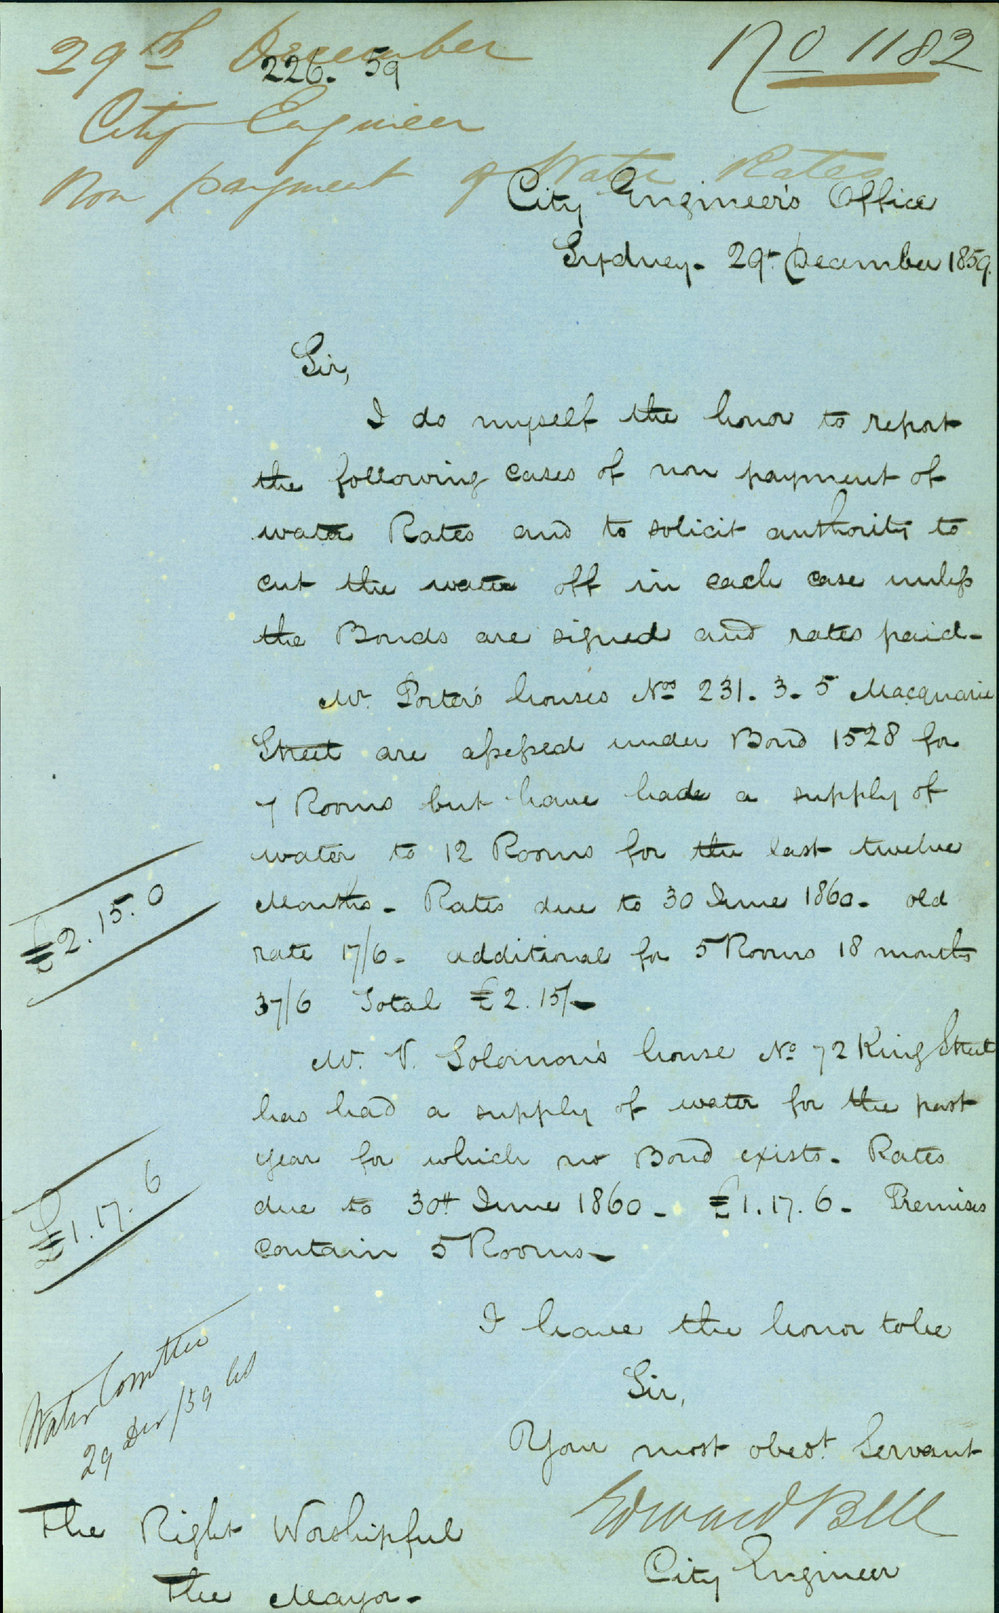 29th December
226. 59
No 1182
City Engineer
Non payment of Water Rates
City Engineer's Office
Sydney - 29th December 1859.
Sir,
I do myself the honor to report
the following cases of non payment of
water Rates and to solicit authority to
cut the water off in each case unless
the Bonds are signed and rates paid -
Mr. Porter's houses Nos 231. 3. 5 Macquarie
Street are assessed under Bond 1528 for
7 Rooms but have had a supply of
water to 12 Rooms for the last twelve
Months - Rates due to 30 June 1860 - old
rate 17/6 - additional for 5 Rooms 18 months
37/6 Total £2.15/-
£2.15.0
Mr. V. Solomon's house No 72 King Street
has had a supply of water for the past
year for which no Bond exists - Rates
due to 30th June 1860 - £1.17.6 - Premises
contain 5 Rooms -
£1.17.6
I have the honor to be
Sir,
Your most obedt. Servant
Edward Bell
City Engineer
Water Committee
29 Decr /59
The Right Worshipful
The Mayor -